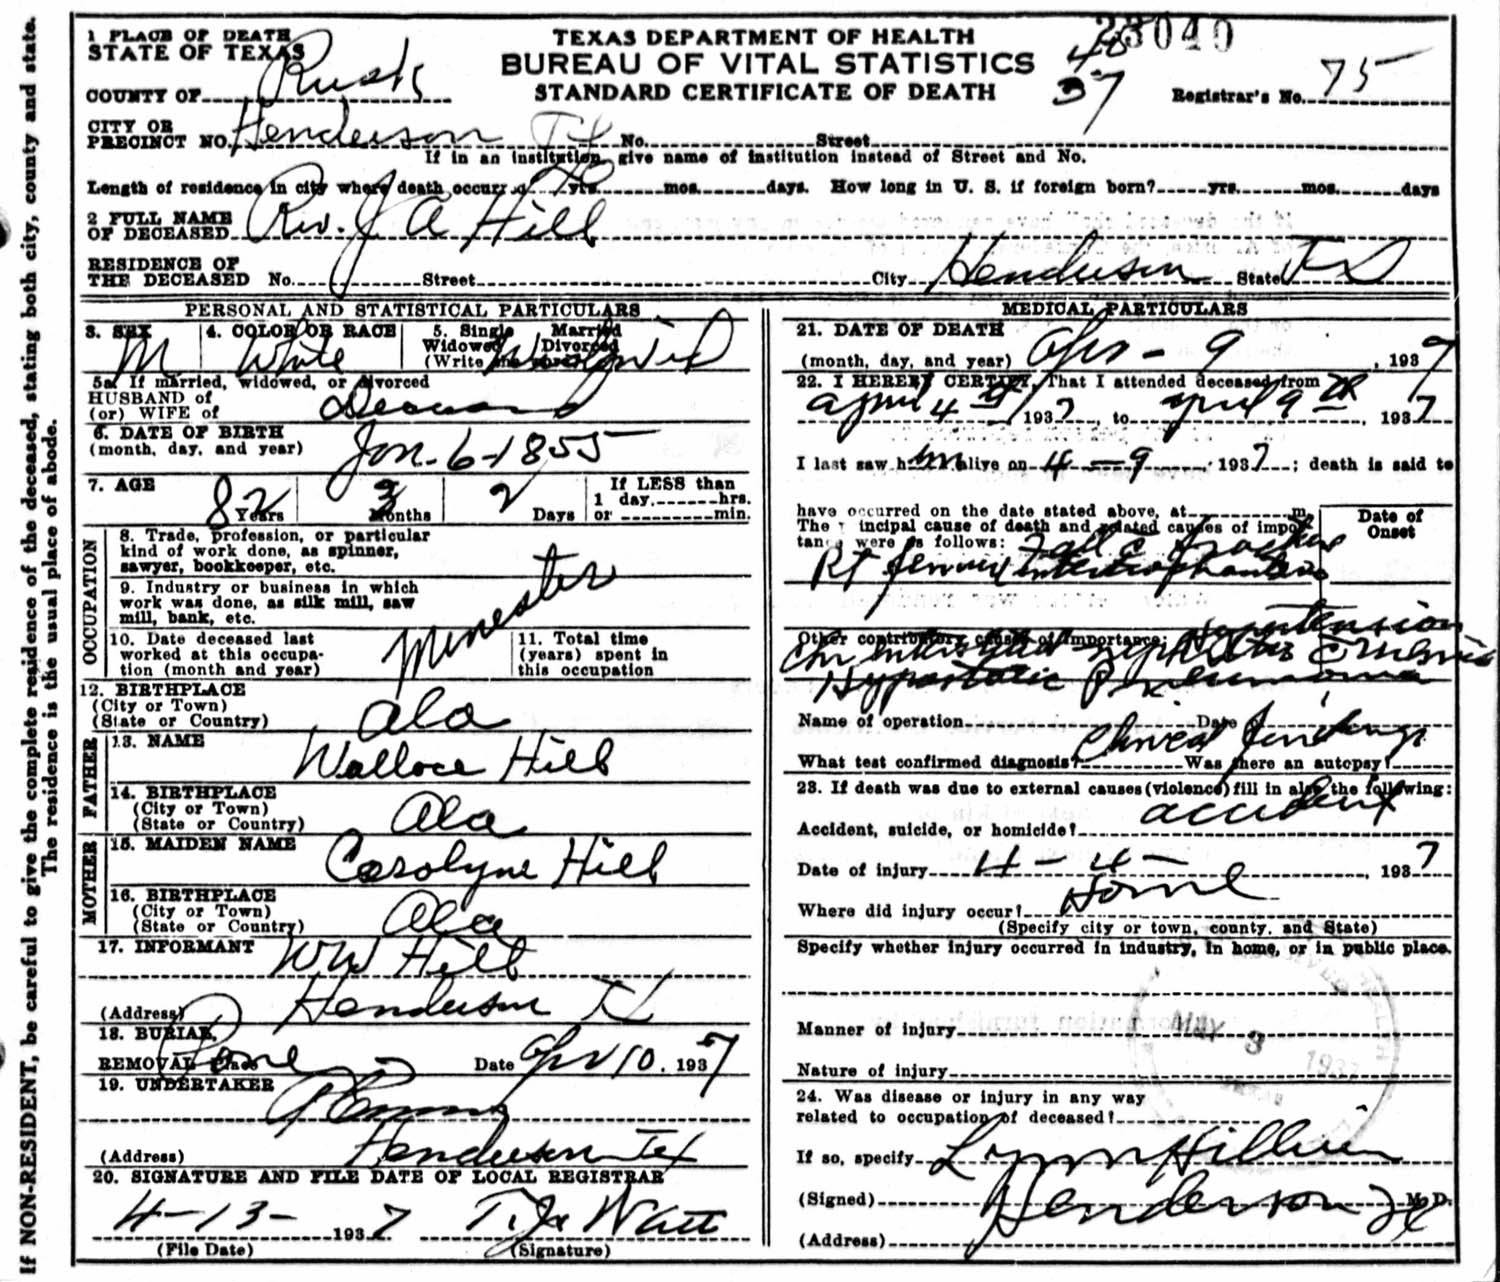 If NON-RESIDENT, be careful to give the complete residence of the deceased, stating both city, county and state.
The residence is the usual place of abode.
1 PLACE OF DEATH
STATE OF TEXAS
COUNTY OF Rusk
TEXAS DEPARTMENT OF HEALTH
BUREAU OF VITAL STATISTICS
STANDARD CERTIFICATE OF DEATH
23040
37
Registrar's No. 75
CITY OR
PRECINCT NO. Henderson Tx No. Street
If in an institution, give name of institution instead of Street and No.
Length of residence in city where death occurred yrs. mos. days. How long in U. S. if foreign born? yrs. mos. days
2 FULL NAME
OF DECEASED Rev. J A Hill
RESIDENCE OF
THE DECEASED No. Street City Henderson State Tx
PERSONAL AND STATISTICAL PARTICULARS
3. SEX M
4. COLOR OR RACE White
5. Single Married
Widowed Divorced
(Write the word) Widowed
5a If married, widowed, or divorced
HUSBAND of
(or) WIFE of Deceased
6. DATE OF BIRTH
(month, day, and year) Jan. 6-1855
7. AGE
82 Years 3 Months 2 Days
If LESS than
1 day, hrs.
or min.
OCCUPATION
8. Trade, profession, or particular
kind of work done, as spinner,
sawyer, bookkeeper, etc.
Minester
9. Industry or business in which
work was done, as silk mill, saw
mill, bank, etc.
10. Date deceased last
worked at this occupa-
tion (month and year)
11. Total time
(years) spent in
this occupation
12. BIRTHPLACE
(City or Town)
(State or Country) Ala
FATHER
13. NAME Wallace Hill
14. BIRTHPLACE
(City or Town)
(State or Country) Ala
MOTHER
15. MAIDEN NAME Carolyne Hill
16. BIRTHPLACE
(City or Town)
(State or Country) Ala
17. INFORMANT WW Hill
(Address) Henderson Tx
18. BURIAL
REMOVAL Place Date Apr 10, 1937
19. UNDERTAKER
(Address) Henderson Tex
20. SIGNATURE AND FILE DATE OF LOCAL REGISTRAR
4-13- 1937 Watt
(File Date) (Signature)
MEDICAL PARTICULARS
21. DATE OF DEATH
(month, day, and year) Apr - 9, 1937
22. I HEREBY CERTIFY, That I attended deceased from
April 4 1937 to April 9 th, 1937
I last saw him alive on 4-9 1937; death is said to
have occurred on the date stated above, at m.
The principal cause of death and related causes of impor-
tance were as follows:
Date of
Onset
Fall c fracture
Rt femur
Other contributory causes of importance: Hypertension
Hypostatic Pneumonia
Name of operation Date of
What test confirmed diagnosis? Clinical findings Was there an autopsy?
23. If death was due to external causes (violence) fill in also the following:
Accident, suicide, or homicide? accident
Date of injury 4-4-, 1937
Where did injury occur? Home
(Specify city or town, county, and State)
Specify whether injury occurred in industry, in home, or in public place.
Manner of injury
Nature of injury
MAY 3 1937
24. Was disease or injury in any way
related to occupation of deceased?
If so, specify
(Signed) M. D.
(Address) Henderson Tx